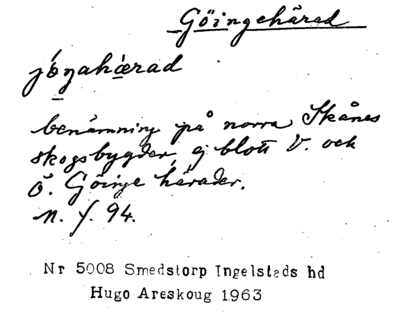 Göingehärad
jö́ŋahæ̀rad
benämning på norra Skånes
skogsbygder, ej blott V. och
Ö. Göinge härader.
n. f. 94.
Nr 5008 Smedstorp Ingelstads hd
Hugo Areskoug 1963